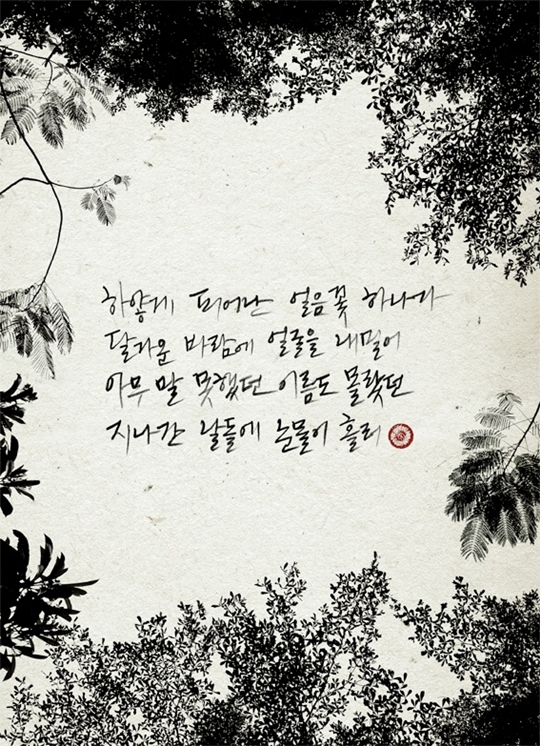 하얗게 피어난 얼음꽃 하나가
달가운 바람에 얼굴을 내밀어
아무 말 못했던 이름도 몰랐던
지나간 날들에 눈물이 흘러